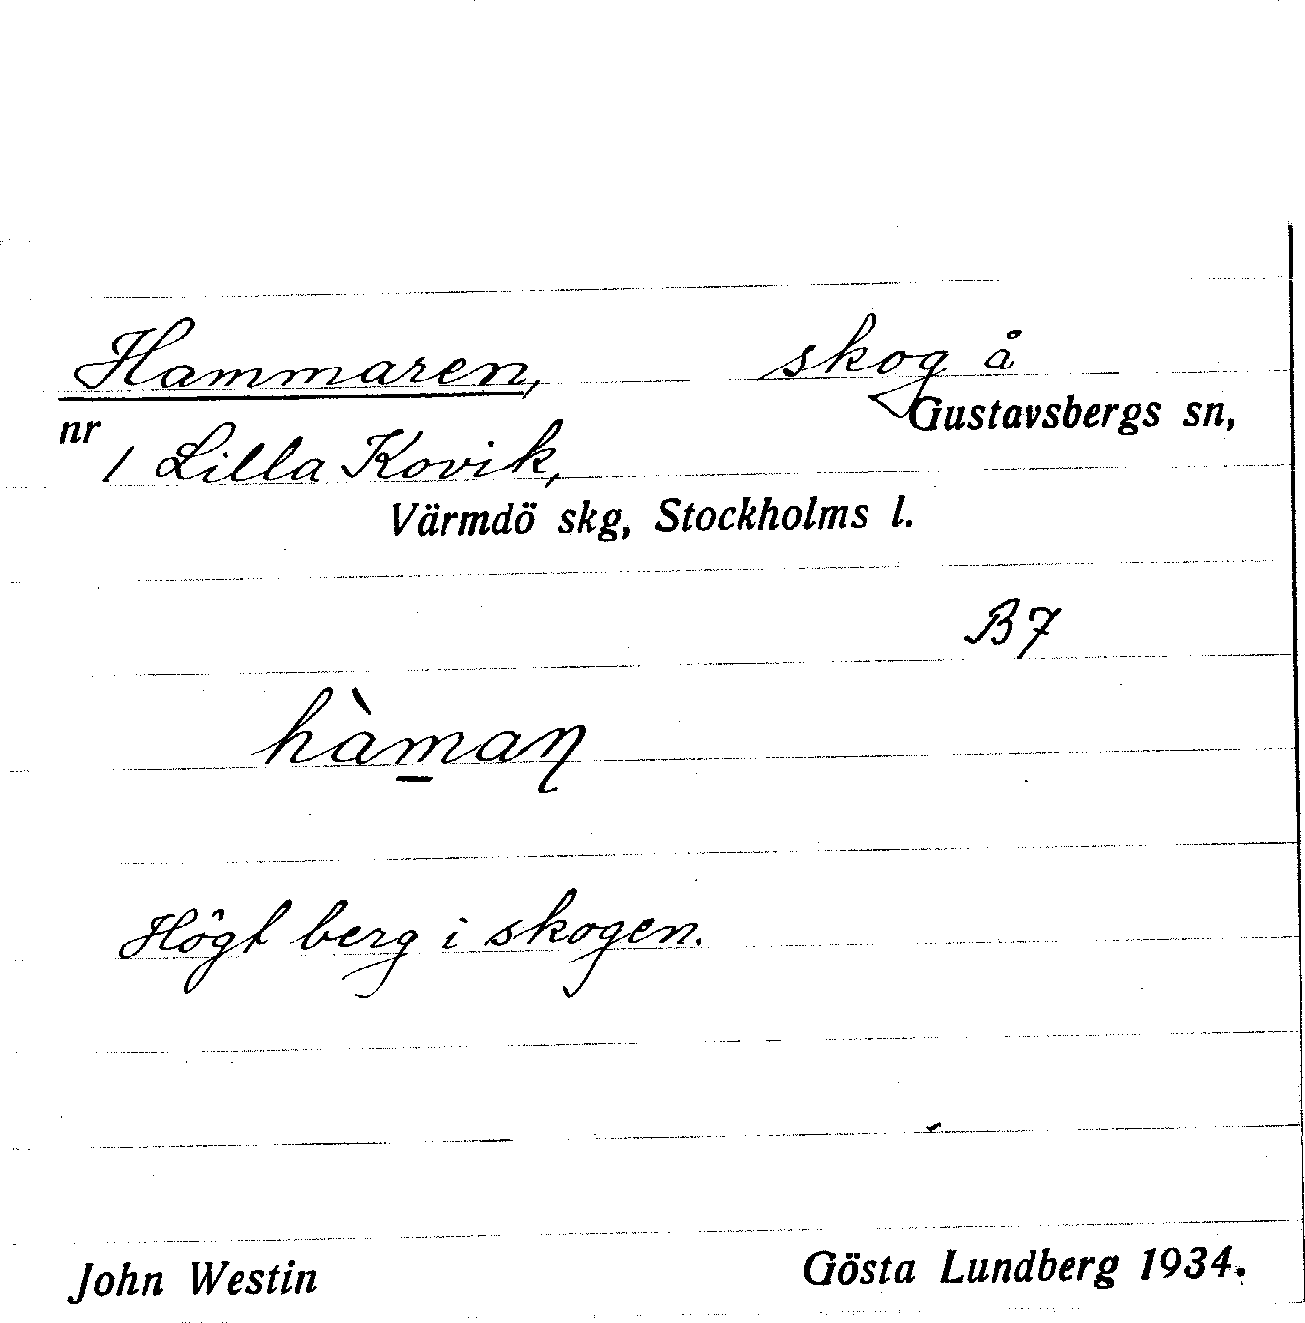 Hammaren, skog å
Gustavsbergs sn,
nr 1 Lilla Kovik,
Värmdö skg, Stockholms l.
B7
hàm̲aɳ
Högt berg i skogen.
John Westin Gösta Lundberg 1934.